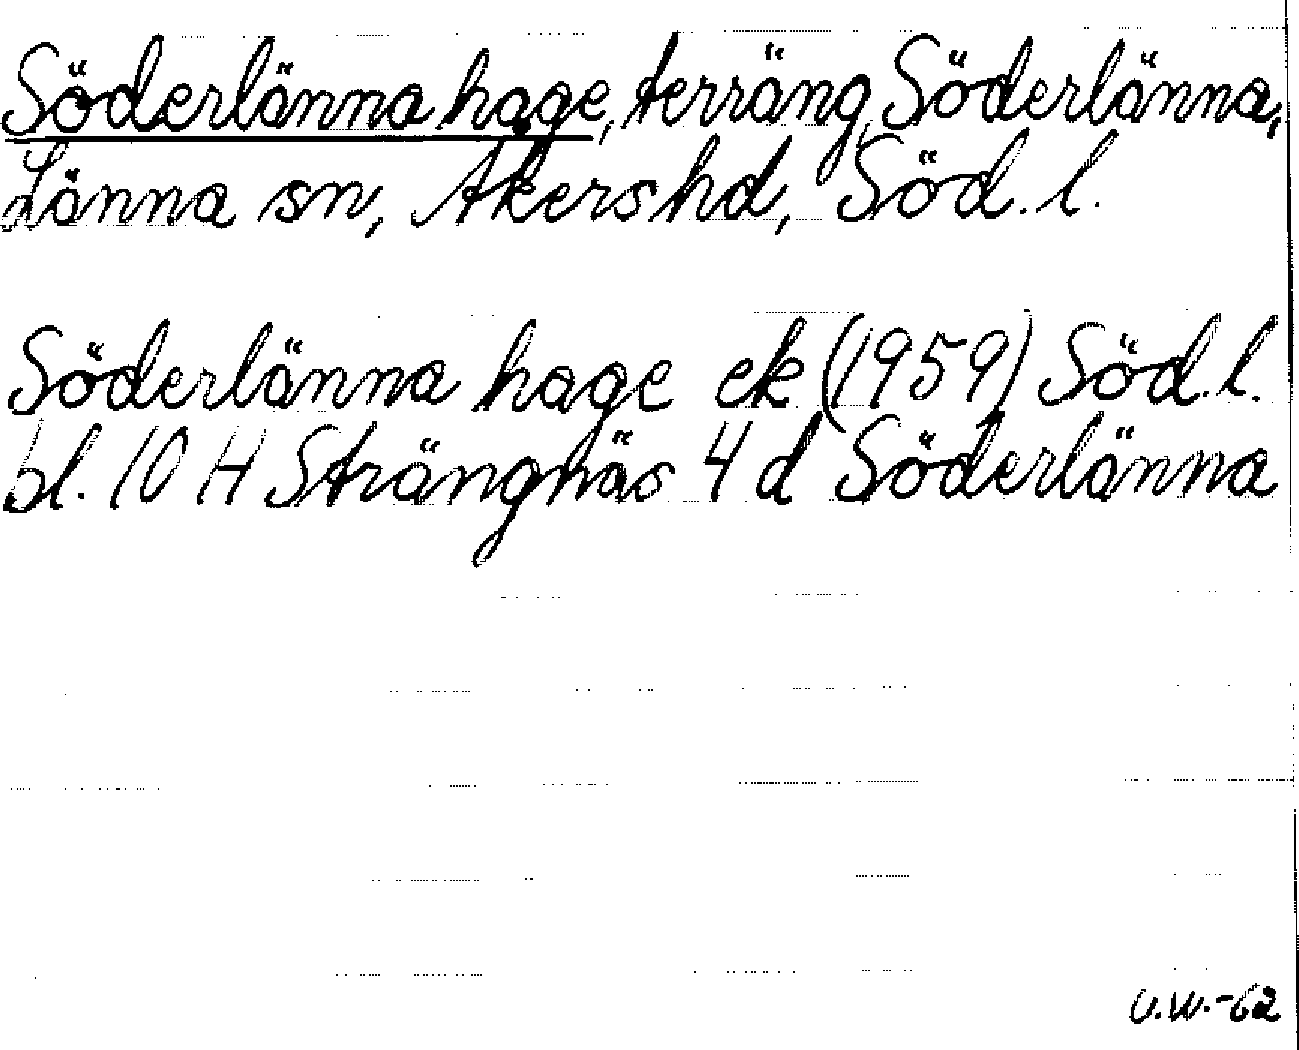 Söderlänna hage, terräng, Söderlänna,
Länna sn, Åkers hd, Söd. l.
Söderlänna hage ek (1959) Söd. l.
bl. 10 H Strängnäs 4 d Söderlänna
U.W.-62